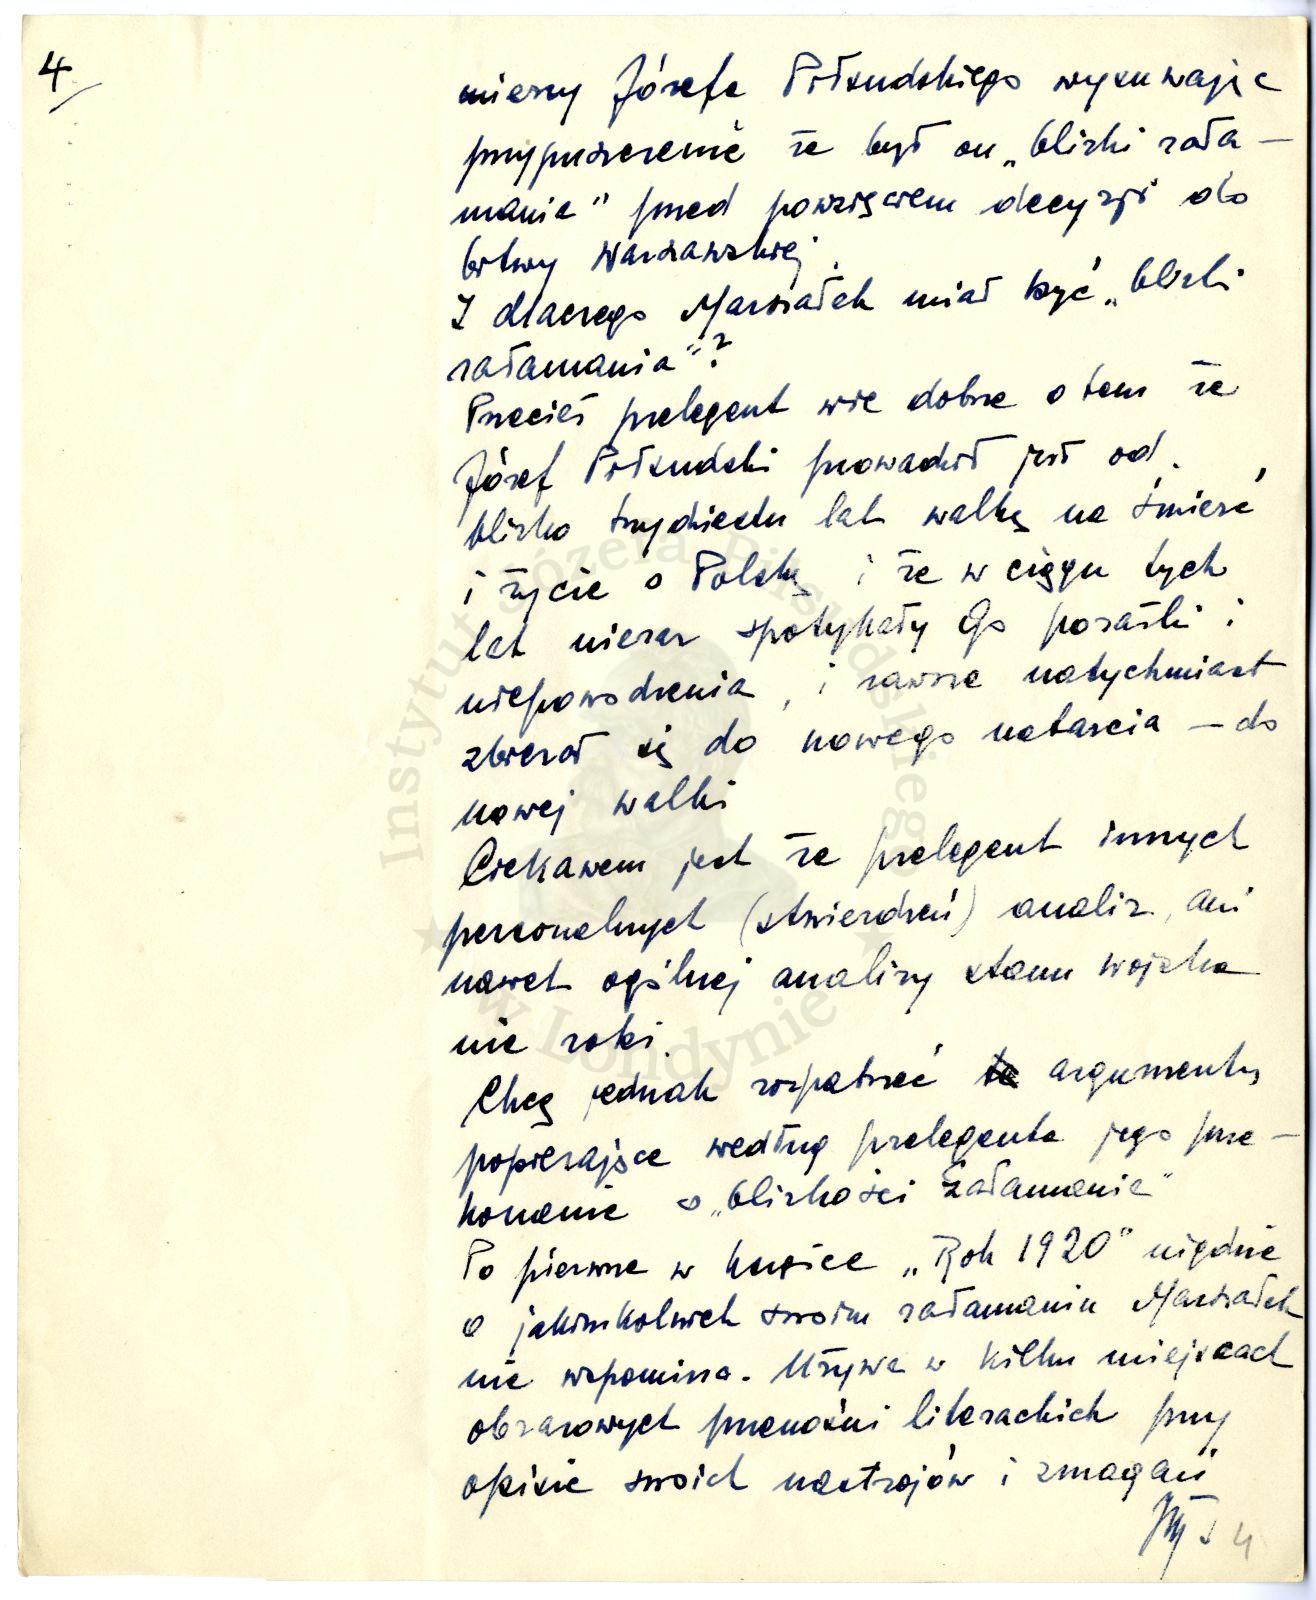 4
mierzy Józefa Piłsudskiego wysuwając
przypuszczenie że był on „bliski zała-
mania" przed powzięciem decyzji do
bitwy Warszawskiej.
I dlaczego Marszałek miał być „bliski
załamania"?
Przecież prelegent wie dobrze o tem że
Józef Piłsudski prowadził już od
blisko trzydziestu lat walkę na śmierć
i życie o Polskę i że w ciągu tych
lat nieraz spotykały Go porażki i
niepowodzenia, i zawsze natychmiast
zbierał się do nowego natarcia – do
nowej walki
Ciekawem jest że prelegent innych
personalnych (stwierdzeń) analiz, ani
nawet ogólnej analizy stanu wojska
nie robi.
Chcę jednak rozpatrzeć te argumenty
popierające według prelegenta jego prze-
konanie o „bliskości załamania"
Po pierwsze w książce „Rok 1920" nigdzie
o jakimkolwiek swoim załamaniu Marszałek
nie wspomina. Używa w kilku miejscach
obrazowych przenośni literackich przy
opisie swoich nastrojów i zmagań
4
Instytut Józefa Piłsudskiego
w Londynie